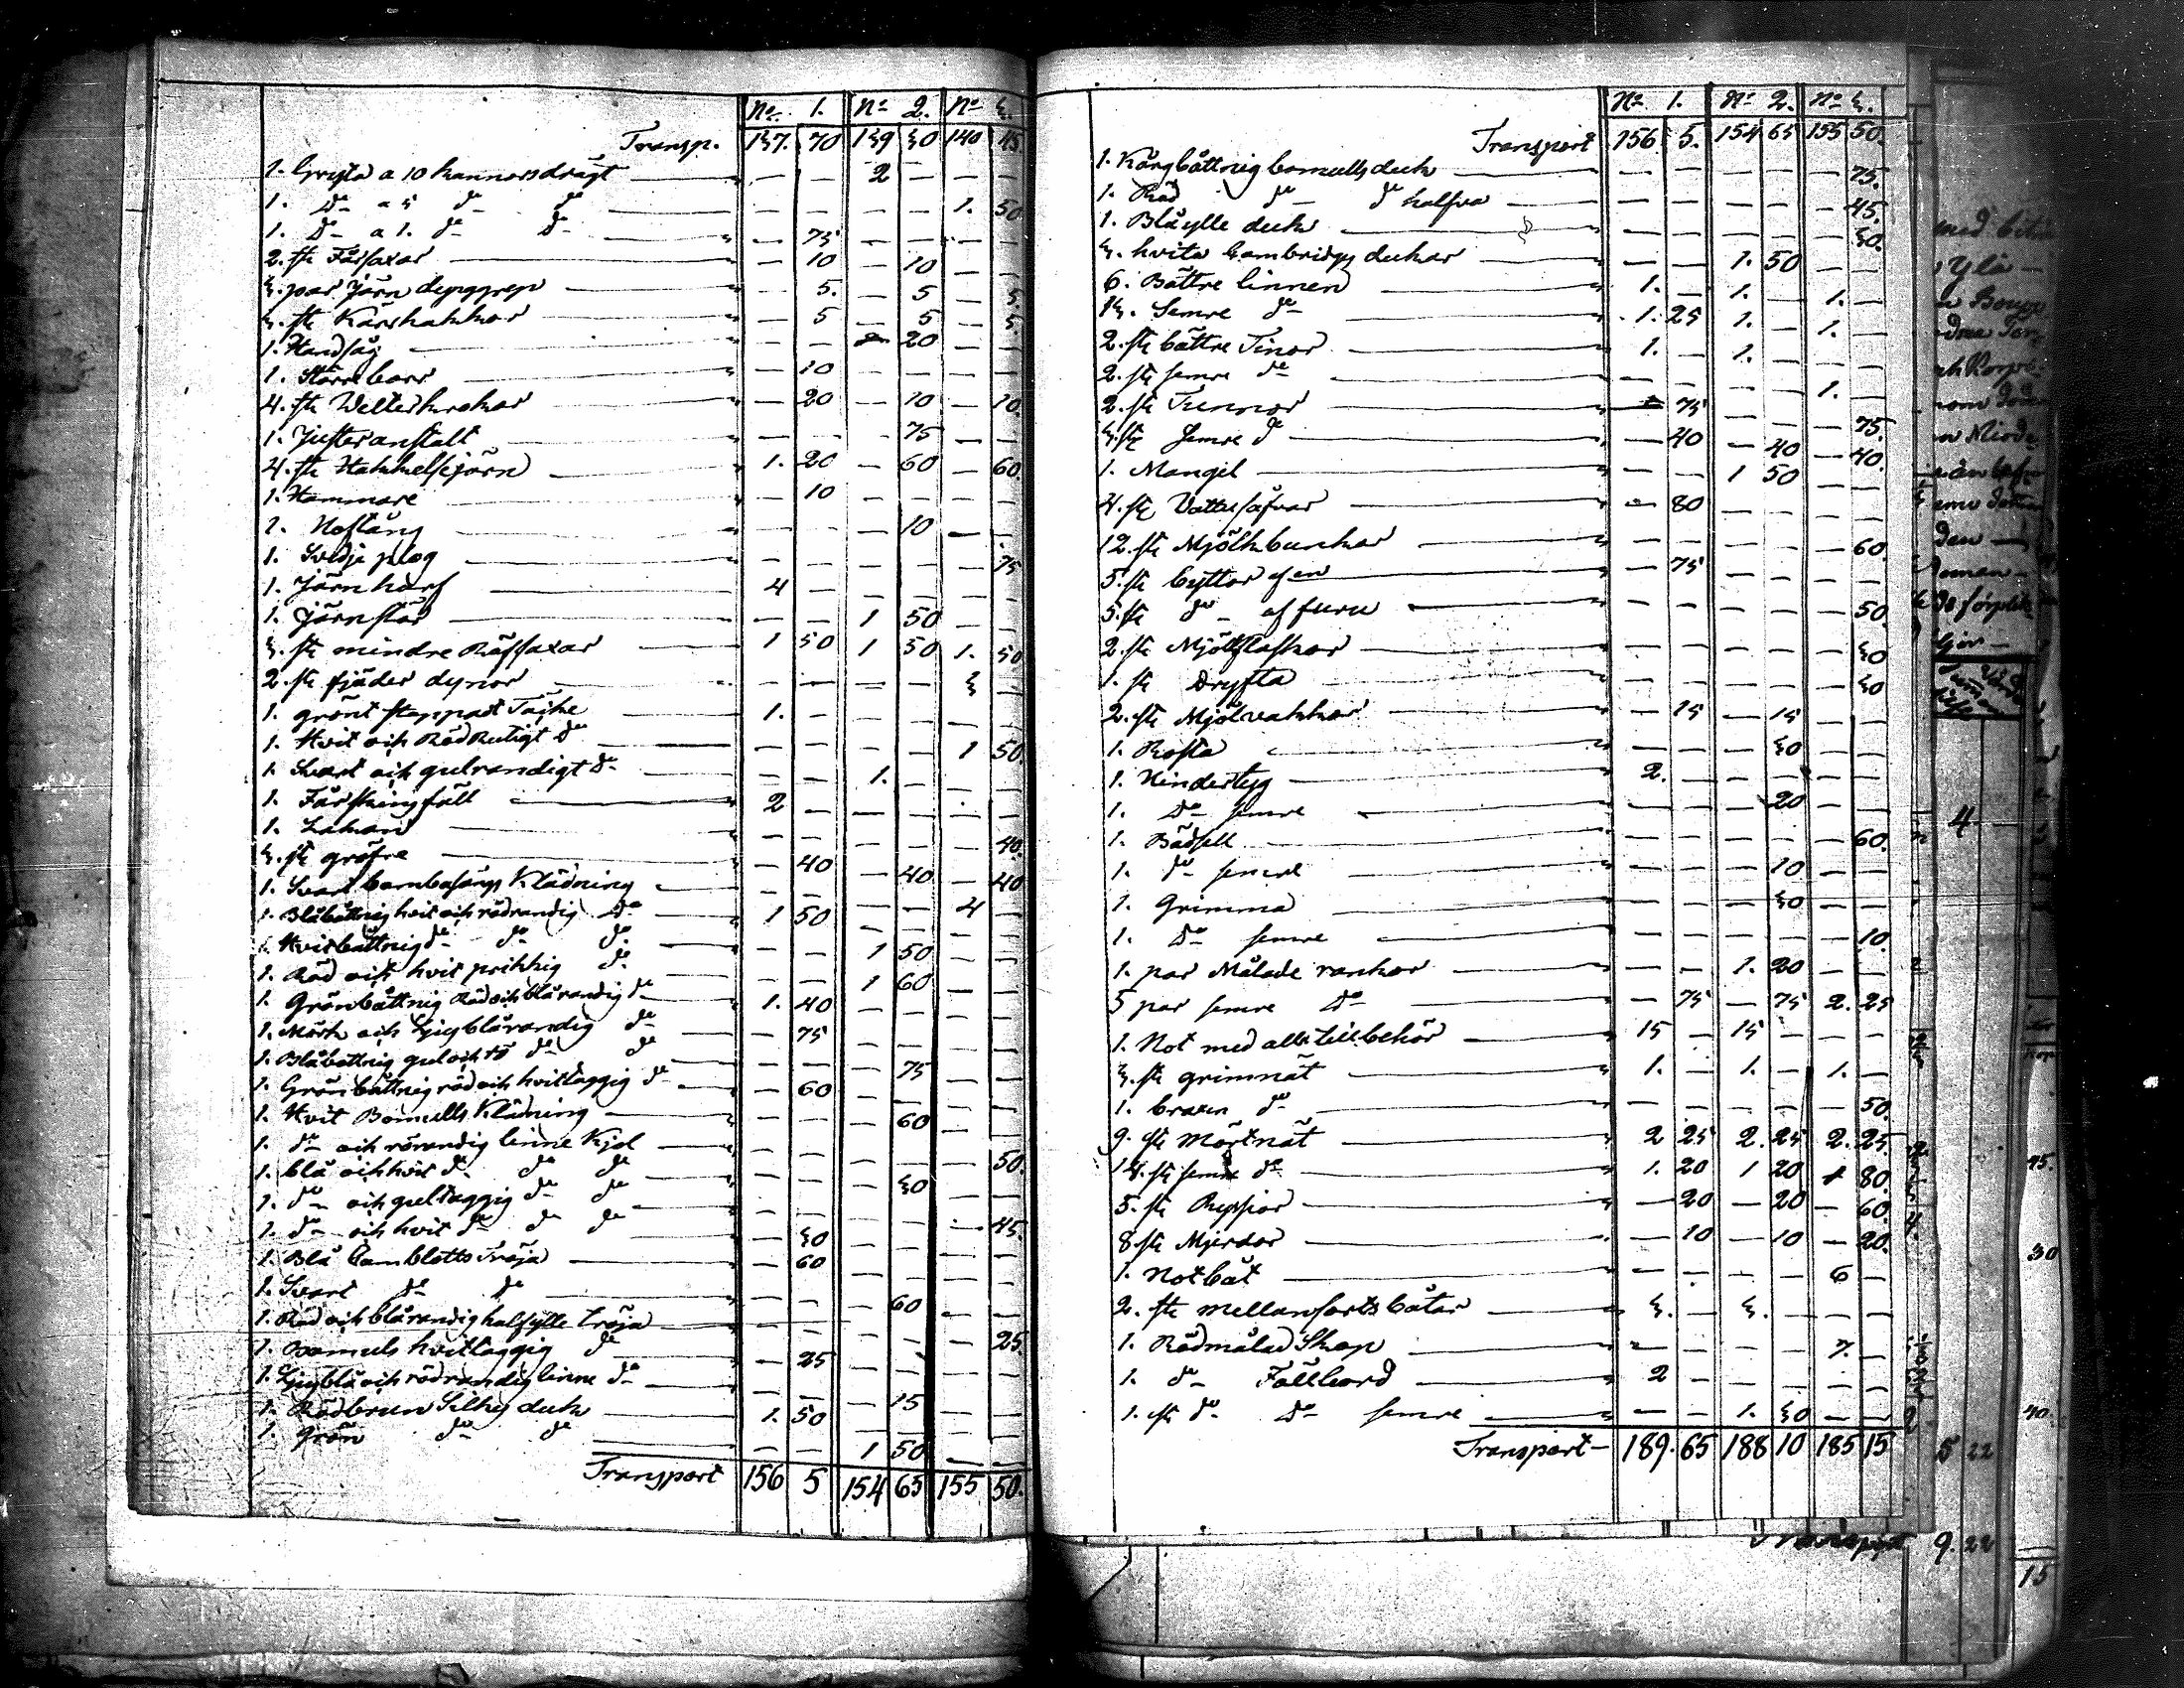 No 1. No 2. No 3.
Transp. 137. 70 139 30 140 45
1. Gryta a 10 kannors drägt — — 2 — — —
1. Do a 5 do do — — — — 1. 50
1. Do a 1. do do — 75 — — — —
2. st Fårsaxar — 10 — 10 — —
3. par Järn — 5. — 5 — 5.
3. st — 5 — 5 — 5
1. Handsåg — — — 20 — —
1. Större borr — 10 — — — —
4. st — 20 — 10 — 10
1. — — — 75 — —
4. st 1. 20 — 60 — 60
1. Hammare — 10 — — — —
1. Hoftång — — — 10 — —
1. Svedje plog — — — — — 75
1. Järnharf 4 — — — — —
1. Järnstör — — 1 50 — —
3. st mindre Räfsaxar 1 50 1 50 1. 50
2. st fjäder dynor — — — — 3 —
1. grönt stoppadt Täcke 1. — — — — —
1. Hvit och Röd Rutigt do — — — — 1 50
1. Svart och gulrandigt do — — 1. — — —
1. Fårskinsfäll 2 — — — — —
1. Lakan — — — — — 40
3. st gröfre — 40 — 40 — 40
1. Svart Klädning — — — — 4 —
1. Blåbåttnig hvit och rödrandig do 1 50 — — — —
1. Hvitbåttnig do do do — — 1 50 — —
1. Röd och hvit prikkig do — — 1 60 — —
1. Grönbåttnig Röd och blårandig do 1. 40 — — — —
1. Mörk och Ljusblårandig do — 75 — — — —
1. Blåbåttnig gul och do do — — — 75 — —
1. Grönbåttnig röd och hvittaggig do — 60 — — — —
1. Hvit Bomulls Klädning — — — 60 — —
1. do och rörandig linne Kjol — — — — — 50.
1. blå och hvit do do do — — — 30 — —
1. do och gultaggig do do — — — — — 45.
1. do och hvit do do do — 30 — — — —
1. Blå Camblotts Tröja — 60 — — — —
1. Svart do do — — — 60 — —
1. Röd och blårandig halfylle tröja — — — — — 25
1. Bomuls hvittaggig do — 25 — — — —
1. Ljusblå och rödrandig linne do — — — 15 — —
1. Rödbrun Silkes duk 1. 50 — — — —
1. Grön do do — — 1 50 — —
Transport 156 5 154 65 155 50.
No 1. No 2. No 3.
Transport 156. 5. 154 65 155 50.
1. bomulls duk — — — — — 75.
1. Röd do do halfva — — — — — 45.
1. Blå ylle duk — — — — — 30.
3. hvita Cambridges dukar — — 1. 50 — —
6. Bättre linnen 1. — 1. — 1. —
14. Semre do 1. 25 1. — 1. —
2. st bättre Tinor 1. — 1. — — —
2. st semre do — — — — 1. —
2. st Tunnor — 75 — — — 75.
3. st Semre do — 40 — 40 — 40.
1. Mangel — — 1 50 — —
4. st Vattusåfvar — 80 — — — —
12. st Mjölkbunkar — — — — — 60
5. st byttor af en — 75 — — — —
5. st do af furu — — — — — 50
2. st Mjölkflaskor — — — — — 30
1. st Dryfta — — — — — 30
2. st Mjölvakkor — 15 — 15 — —
1. Rosta — — — 30 — —
1. 2. — — — — —
1. Do semre — — — 20 — —
1. Bådsell — — — — — 60.
1. do semre — — — 10 — —
1. Grimma — — — 30 — —
1. Do semre — — — — — 10.
1. par Målade rankor — — 1. 20 — —
5 par semre Do — 75 — 75 2. 25
1. Not med alla tillbehör 15 — 15 — — —
3. st grimnät 1. — 1. — 1. —
1. braxn do — — — — — 50.
9. st Mörtnät 2 25 2. 25 2. 25
14. st semre do 1. 20 1 20 1 80
5. st Ryssjor — 20 — 20 — 60
8. st Mjerdar — 10 — 10 — 20.
1. Notbåt — — — — 6 —
2. st mellansortsbåtar 3. — 3. — — —
1. Rödmålad Skap — — — — 7. —
1. do Fällbord 2 — — — — —
1. st do Do semre — — 1. 30 — —
Transport 189. 65 188 10 185 15